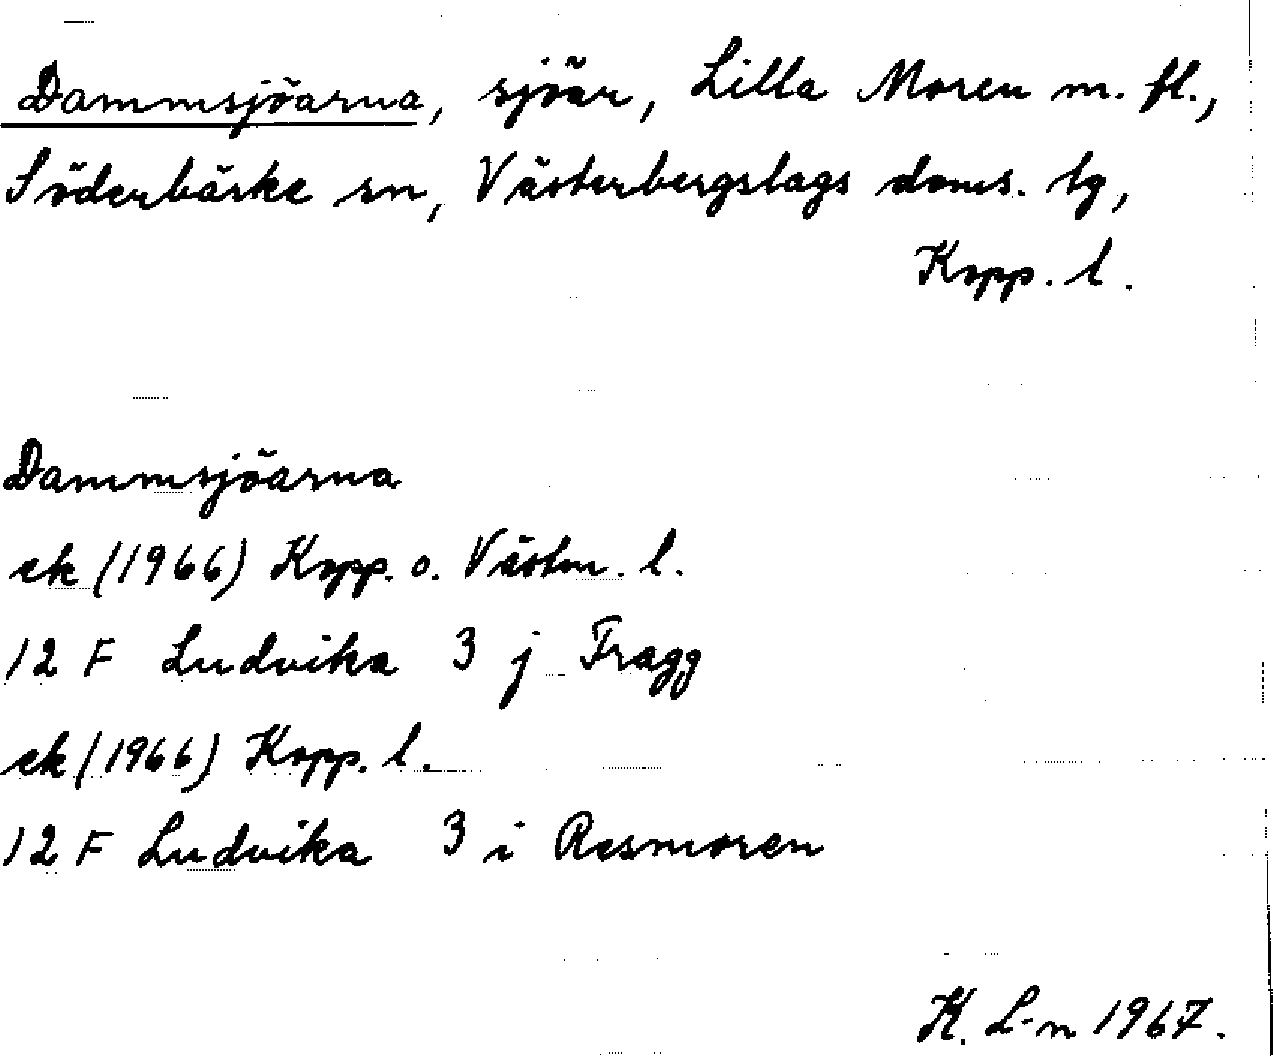 Dammsjöarna, sjöar, Lilla Moren m. fl.,
Söderbärke sn, Västerbergslags doms. lg,
Kopp. l.
Dammsjöarna
ek (1966) Kopp. o. Västm. l.
12 F Ludvika 3 j Fragg
ek (1966) Kopp. l.
12 F Ludvika 3 i Resmoren
K. L-n 1967.